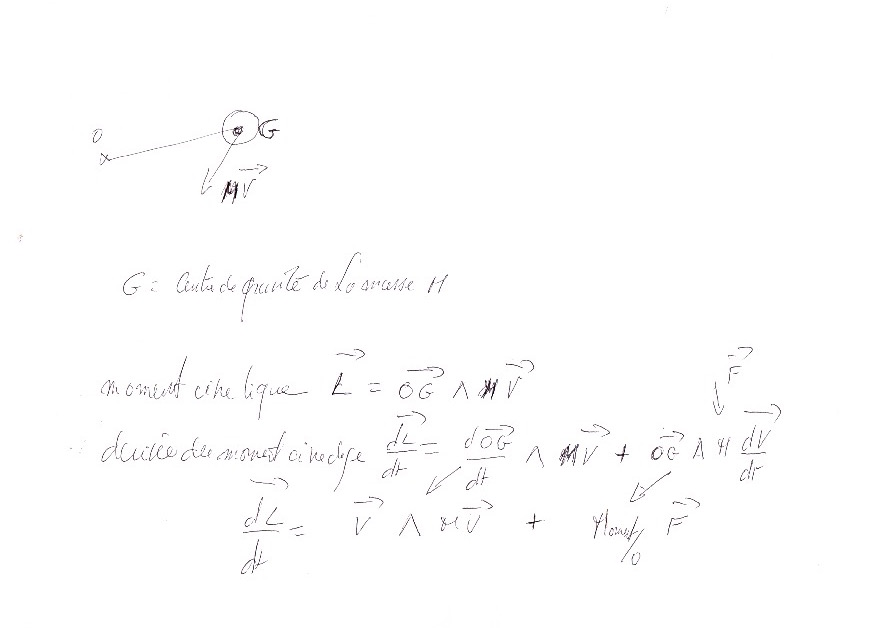 O
G
M\vec{V}
G = Centre de gravité de La masse M
moment cinetique \vec{L} = \vec{OG} ∧ M\vec{V}
\vec{F}
derivée du moment cinetique \frac{d\vec{L}}{dt} = \frac{d\vec{OG}}{dt} ∧ M\vec{V} + \vec{OG} ∧ M \frac{d\vec{V}}{dt}
\frac{d\vec{L}}{dt} = \vec{V} ∧ M\vec{V} + Moment/O \vec{F}